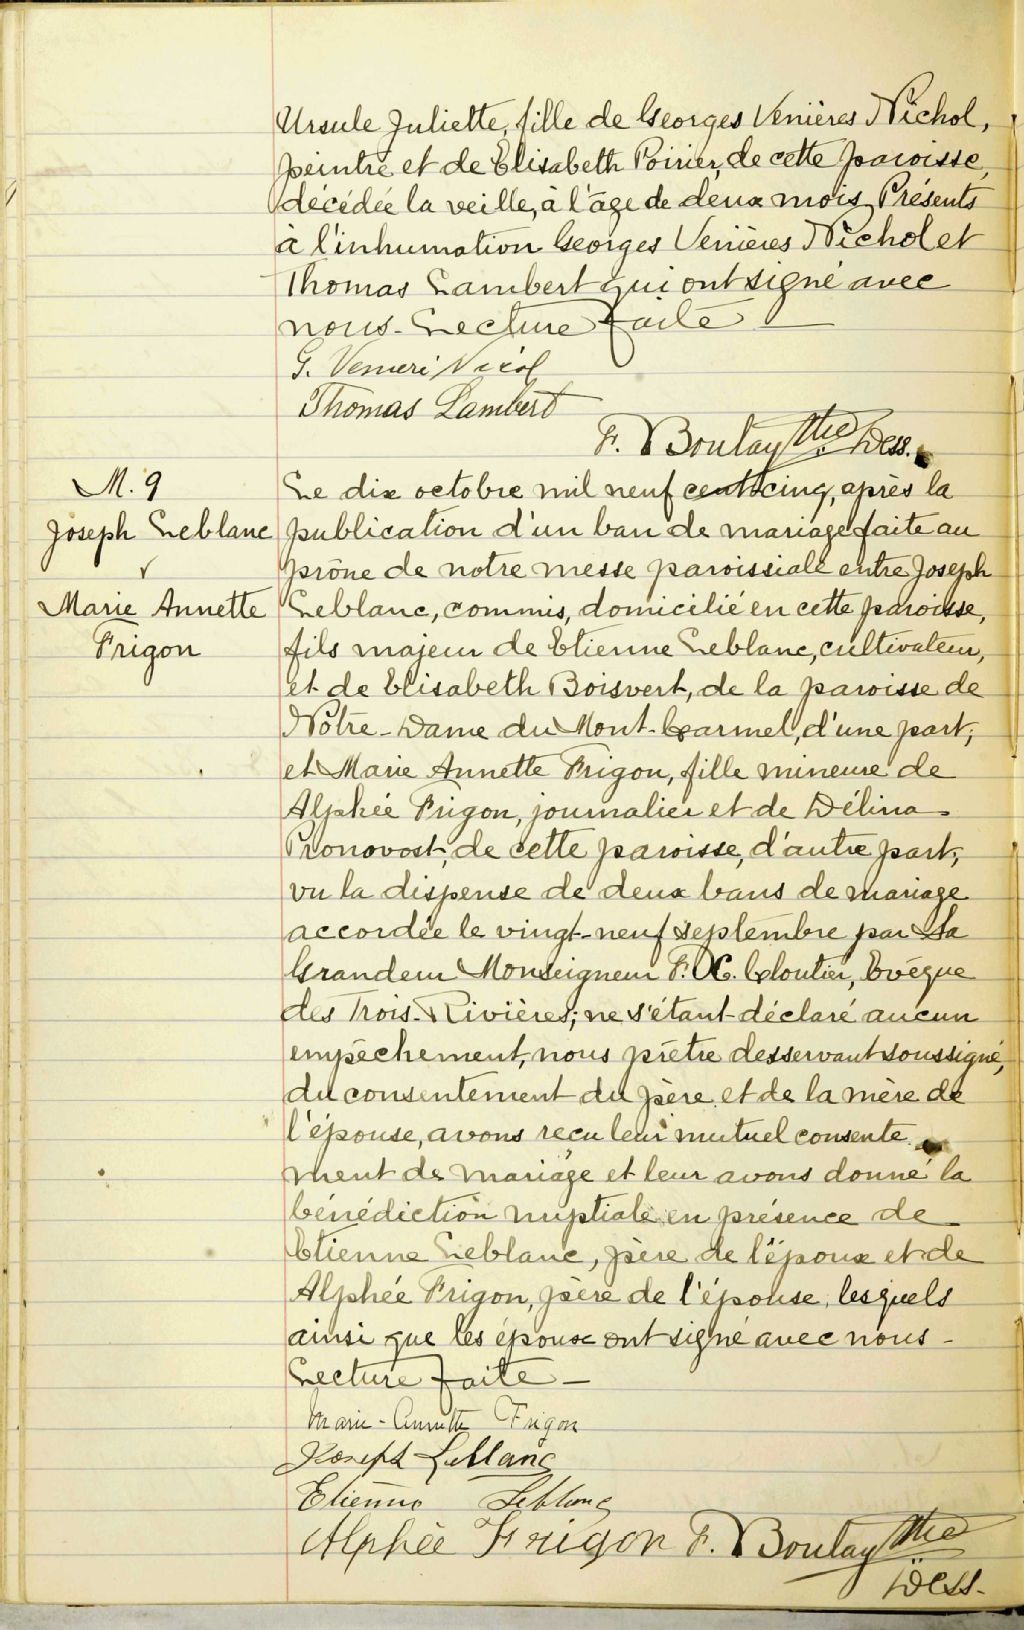 Ursule Juliette, fille de Georges Venières Nichol,
peintre et de Elisabeth Poirier, de cette paroisse,
décédée la veille, à l'âge de deux mois. Présents
à l'inhumation Georges Venières Nichol et
Thomas Lambert qui ont signé avec
nous. Lecture faite —
G. Veneri Nicol
Thomas Lambert
F. Boulay ptre Dess.
M. 9
Joseph Leblanc
√
Marie Annette
Frigon
Le dix octobre mil neuf cent cinq, après la
publication d'un ban de mariage faite au
prône de notre messe paroissiale entre Joseph
Leblanc, commis, domicilié en cette paroisse,
fils majeur de Etienne Leblanc, cultivateur,
et de Elisabeth Boisvert, de la paroisse de
Notre-Dame du Mont-Carmel, d'une part;
et Marie Annette Frigon, fille mineure de
Alphée Frigon, journalier et de Délina
Pronovost, de cette paroisse, d'autre part;
vu la dispense de deux bans de mariage
accordée le vingt-neuf septembre par Sa
Grandeur Monseigneur F. X. Cloutier, Evêque
des Trois-Rivières; ne s'étant déclaré aucun
empêchement, nous prêtre desservant soussigné,
du consentement du père et de la mère de
l'épouse, avons reçu leur mutuel consente
ment de mariage et leur avons donné la
bénédiction nuptiale en présence de
Etienne Leblanc, père de l'époux et de
Alphée Frigon, père de l'épouse, lesquels
ainsi que les époux ont signé avec nous -
Lecture faite —
Marie-Annette Frigon
Joseph Leblanc
Etienne Leblanc
Alphée Frigon F. Boulay ptre
Dess.